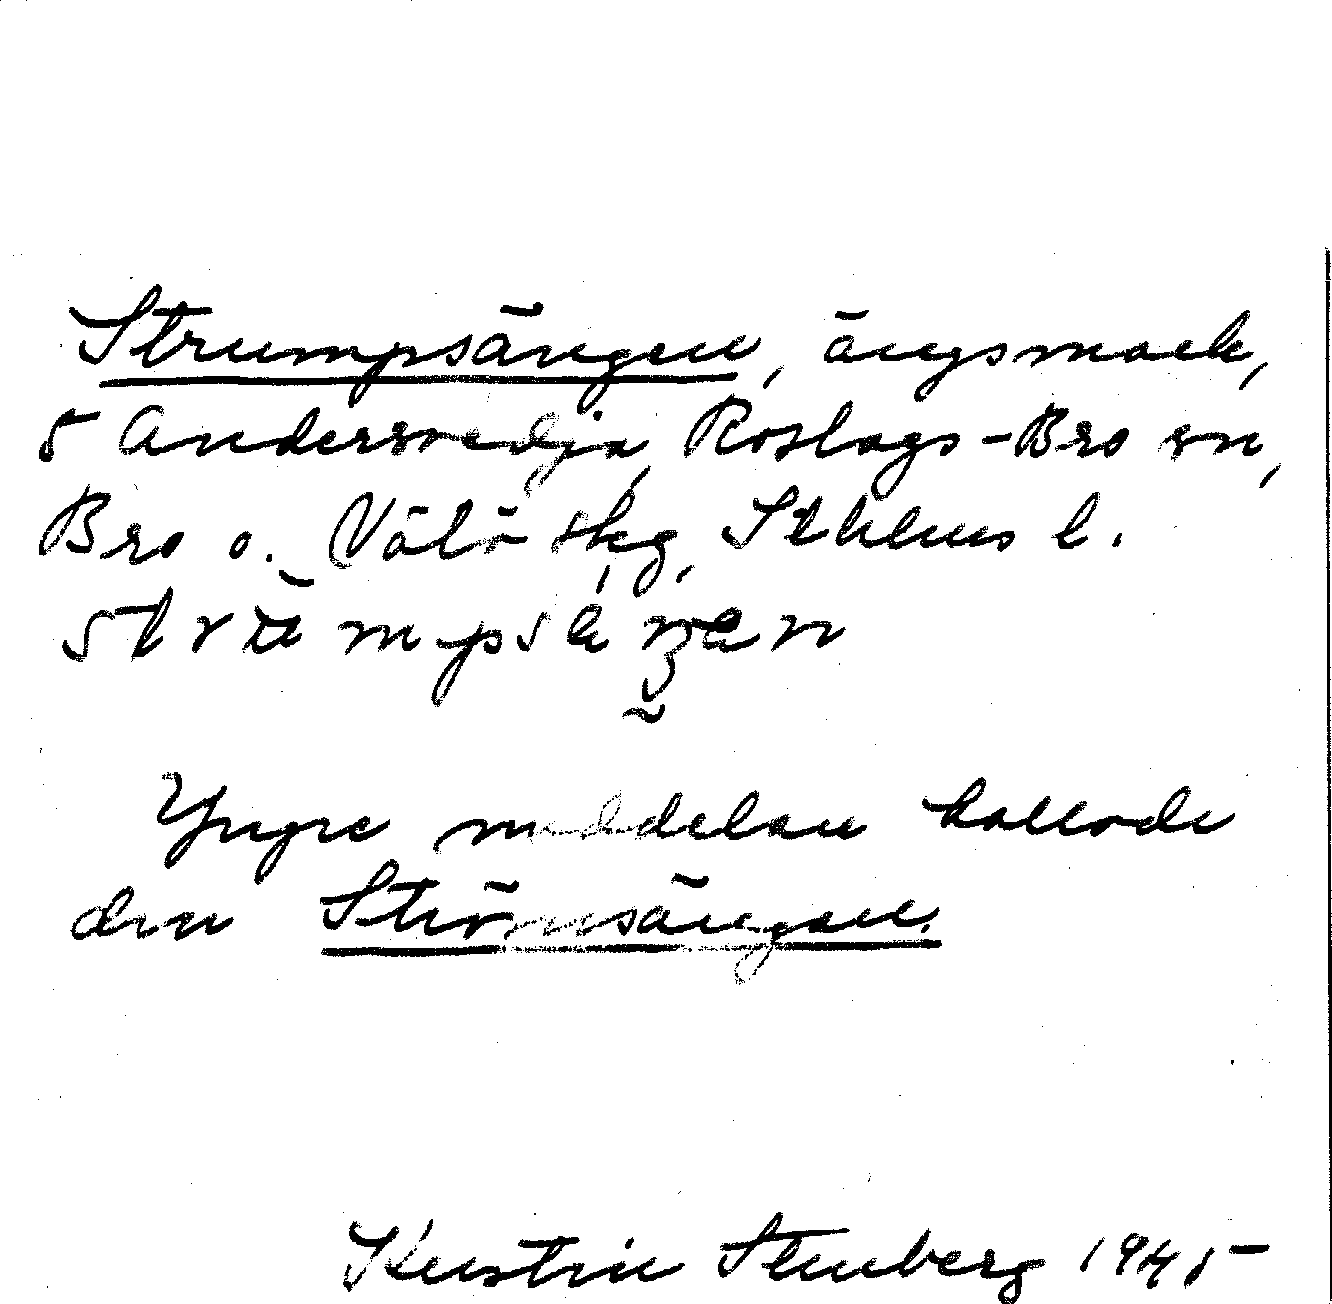 Strumpsängen, ängsmark,
5 Andersvedja, Roslags-Bro sn,
Bro o. Vätö skg, Sthlms l.
Yngre meddelare kallade
den Strömsängan.
Kerstin Stenberg 1945